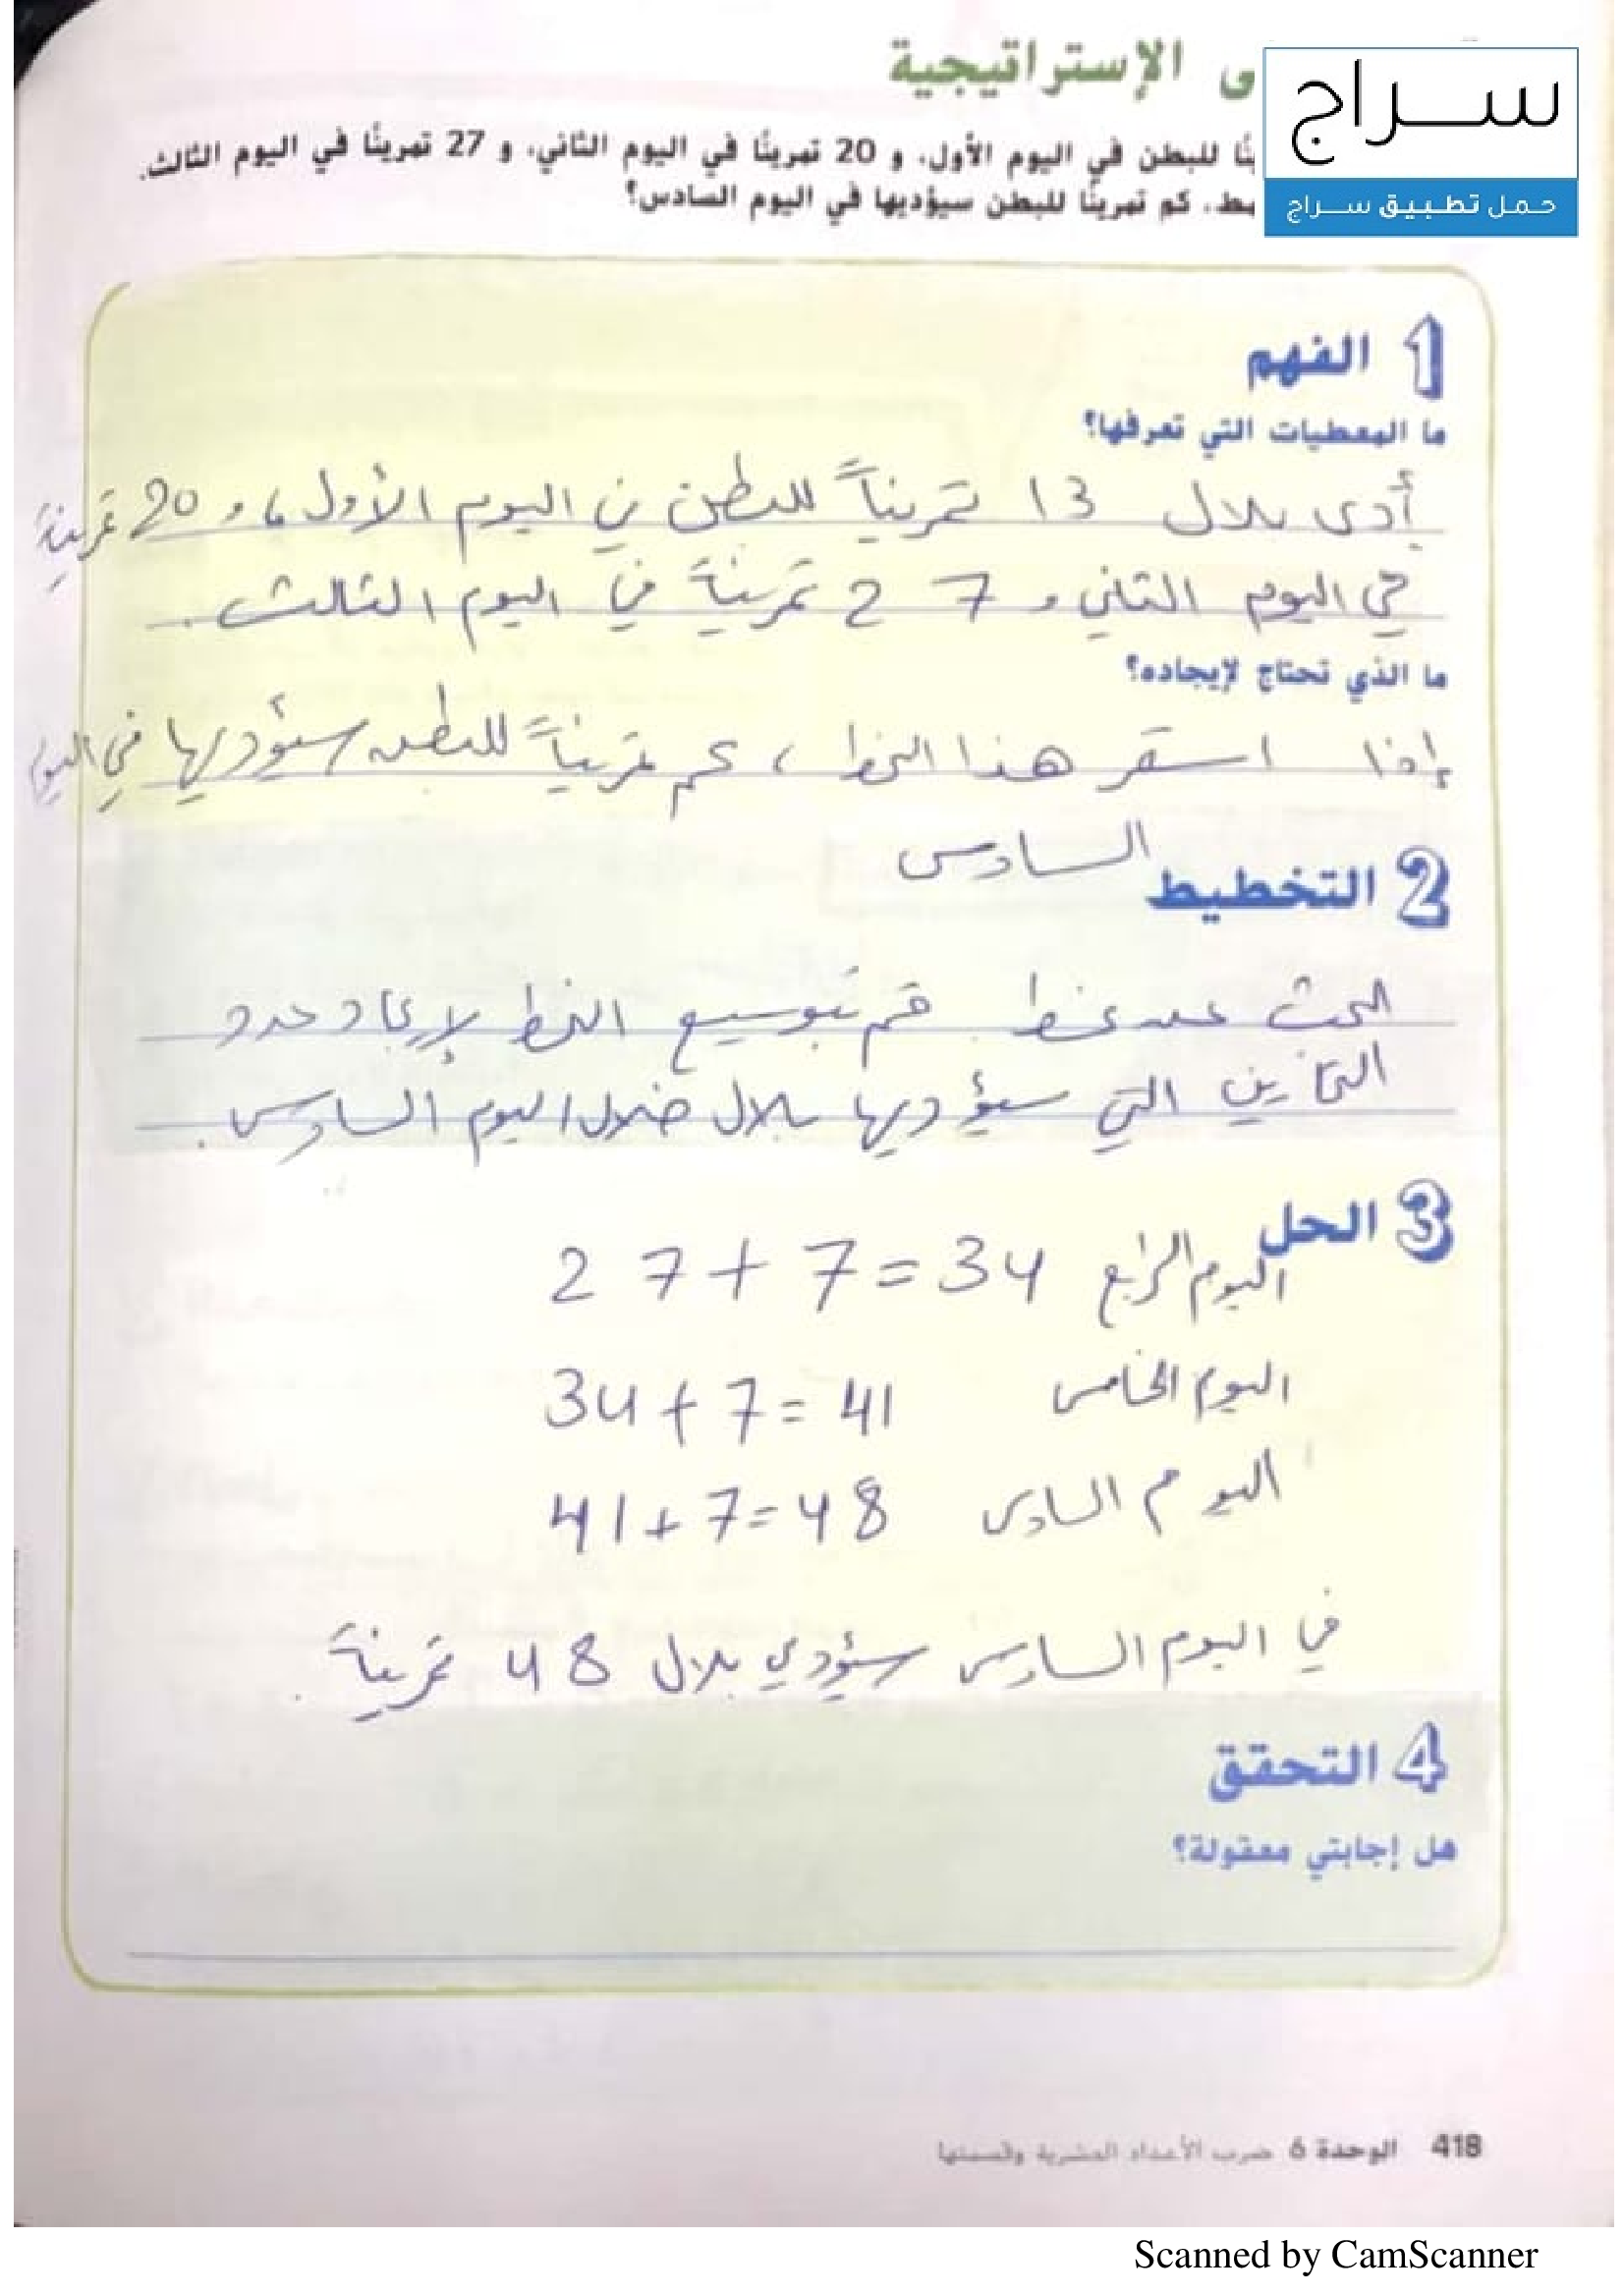 ى الإستراتيجية
سراج
حمل تطبيق سراج
ينًا للبطن في اليوم الأول، و 20 تمرينًا في اليوم الثاني، و 27 تمرينًا في اليوم الثالث.
كم تمرينًا للبطن سيؤديها في اليوم السادس؟
1 الفهم
ما المعطيات التي تعرفها؟
أدى بلال 13 تمريناً للبطن في اليوم الأول، و 20 تمرينة
في اليوم الثاني و 27 تمرينة في اليوم الثالث.
ما الذي تحتاج لإيجاده؟
إذا استمر هذا النمط، كم تمريناً للبطن سيؤديها في اليوم
السادس
2 التخطيط
البحث عن نمط. قم بتوسيع النمط لإيجاد عدد
التمارين التي سيؤديها بلال خلال اليوم السادس.
3 الحل
اليوم الرابع 27 + 7 = 34
اليوم الخامس 34 + 7 = 41
اليوم السادس 41 + 7 = 48
في اليوم السادس سيؤدي بلال 48 تمرينة.
4 التحقق
هل إجابتي معقولة؟
418 الوحدة 6 ضرب الأعداد العشرية وقسمتها
Scanned by CamScanner